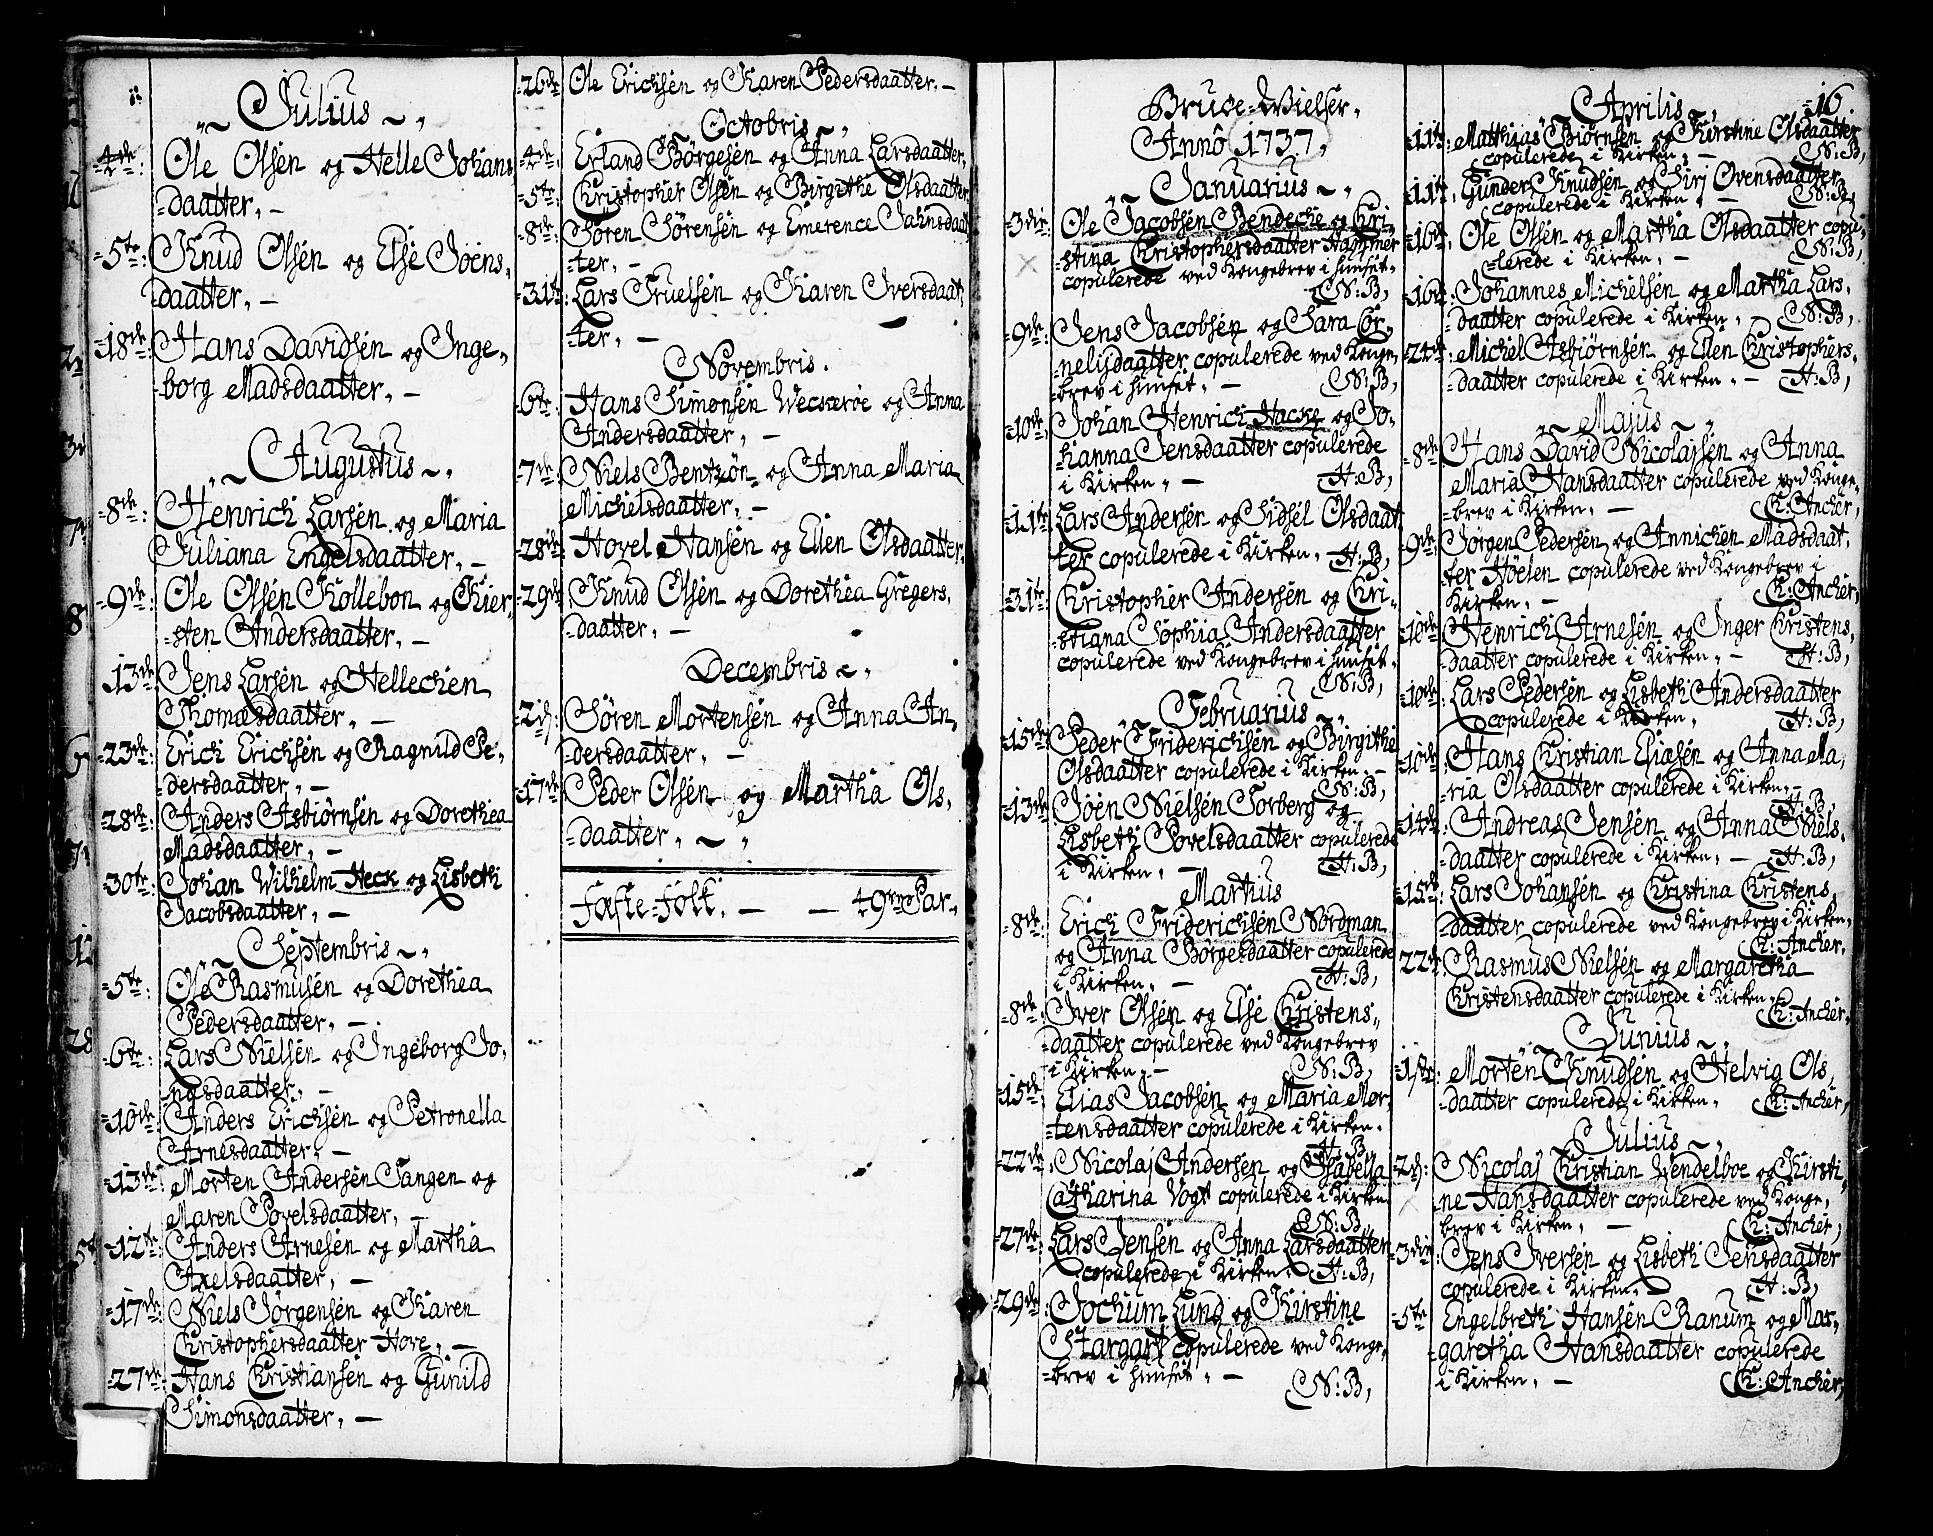 Julius
4de: Ole Olsen og Helle Johans
daatter.
5te: Knud Olsen og Else Joens
daatter.
18de: Hans Davidsen og Inge-
borg Madsdaatter.
Augustus
8de: Henrich Larsen og Maria
Juliana Engelsdaatter.
9de: Ole Olsen Kollebon og Kier
sten Andersdaatter.
13de: Jens Larsen og Hellechen
Thomasdaatter.
23de: Erich Erichsen og Ragnild Pe-
dersdaatter.
28de: Anders Asbiørnsen og Dorethea
Madsdaatter.
30te: Johan Wilhelm Heck og Lisbeth
Jacobsdaatter.
Septembris
5te: Ole Rasmusen og Dorethea
Pedersdaatter.
6te: Lars Nielsen og Ingeborg Jo-
nasdaatter.
10de: Anders Erichsen og Petronella
Arnesdaatter.
13de: Morten Andersen Tangen og
Maren Povelsdaatter.
12te: Anders Arnesen og Martha
Axelsdaatter.
17de: Niels Jörgensen og Karen
Kristophersdaatter Hove.
27de: Hans Kristiansen og Gunild
Simonsdaatter.
26de: Ole Erichsen og Karen Pedersdaatter.
Octobris
4de: Erland Börgesen og Anna Larsdaatter.
5te: Kristopher Olsen og Birgithe Olsdaatter
8de: Sören Sörensen og Emerence Jahnsdaat
ter.
31te: Lars Truelsen og Karen Iversdaat
ter.
Novembris.
6te: Hans Simonsen Wecseröe og Anna
Andersdaatter.
7de: Niels Bentzön og Anna Maria
Michelsdaatter.
28de: Hovel Hansen og Ellen Olsdaatter.
29de: Knud Olsen og Dorethea Gregers
daatter.
Decembris
2den: Sören Mortensen og Anna An
dersdaatter.
17de: Peder Olsen og Martha Ols
daatter.
Fæste-Folk. 49 Par.
16.
Brude-Vielser.
Anno 1737.
Januarius
3die: Ole Jacobsen Bendeche og Kri-
stina Kristophersdaatter Hammer
copulerede ved Kongebrev i huuset.
N: B,
9de: Jens Jacobsen og Sara Cor-
nelisdaatter copulerede ved Konge-
brev i huuset. N: B,
10de: Johan Henrich Hacke og Jo-
hanna Jensdaatter copulerede
i Kirken. H: B,
11te: Lars Andersen og Sidsel Olsdaat
ter copulerede i Kirken. H: B,
31te: Kristopher Andersen og Kri-
stiana Sophia Andersdaatter
copulerede ved Kongebrev i huuset.
N: B,
Februarius
15de: Peder Friderichsen og Birgithe
Olsdaatter copulerede i Kirken.
N: B,
13de: Joen Nielsen Torberg og
Lisbeth Povelsdaatter copulerede
i Kirken. H: B,
Martius
8de: Erich Friderichsen Nordman
og Anna Börgesdaatter copulerede
i Kirken. H: B,
8de: Iver Olsen og Else Kristens
daatter copulerede ved Kongebrev
i Kirken. N: B,
15de: Elias Jacobsen og Maria Mor
tensdaatter copulerede i Kirken.
H: B,
22de: Nicolaj Andersen og Isabella
Catharina Vogt copulerede i Kirken
N: B,
27de: Lars Jensen og Anna Larsdaatter
copulerede i Kirken. H: B,
29de: Jochum Lund og Kirstine
Stargart copulerede ved Konge-
brev i huuset. N: B,
Aprilis
11te: Matthias Biörnsen og Kirstine Olsdaatter
copulerede i Kirken. N: B,
11te: Gunder Knudsen og Siri Ovensdaatter
copulerede i Kirken. N: B,
16de: Ole Olsen og Martha Olsdaatter copu-
lerede i Kirken. N: B,
16de: Johannes Michelsen og Martha Lars
daatter copulerede i Kirken. N: B,
24de: Michel Asbiörnsen og Ellen Kristophers
daatter copulerede i Kirken. H: B,
Majus
8de: Hans David Nicolajsen og Anna
Maria Hansdaatter copulerede ved Konge-
brev i Kirken. K: Ancher,
9de: Jörgen Pedersen og Annichen Madsdaat
ter Hoelen copulerede ved Kongebrev i
Kirken. K: Ancher,
10de: Henrich Arnesen og Inger Kristens
daatter copulerede i Kirken. H: B,
10de: Lars Pedersen og Lisbeth Andersdaatter
copulerede i Kirken. H: B,
10de: Hans Kristian Eliasen og Anna Ma
ria Olsdaatter copulerede i Kirken.
H: B,
14de: Andreas Jensen og Anna Niels
daatter copulerede i Kirken. H: B,
15de: Lars Johansen og Kristina Kristens
daatter copulerede ved Kongebrev i Kirken.
K: Ancher,
22de: Rasmus Nielsen og Margaretha
Kristensdaatter copulerede i Kirken.
K: Ancher,
Junius
1ste: Morten Knudsen og Helvig Ols
daatter copulerede i Kirken. K: Ancher,
Julius
2den: Nicolaj Kristian Wendelboe og Kirsti
ne Hansdaatter copulerede ved Konge-
brev i Kirken. K: Ancher,
3die: Jens Iversen og Lisbeth Jensdaatter
copulerede i Kirken. H: B,
5te: Engelbreth Hansen Ranum og Mar-
garetha Hansdaatter copulerede
i Kirken. K: Ancher,